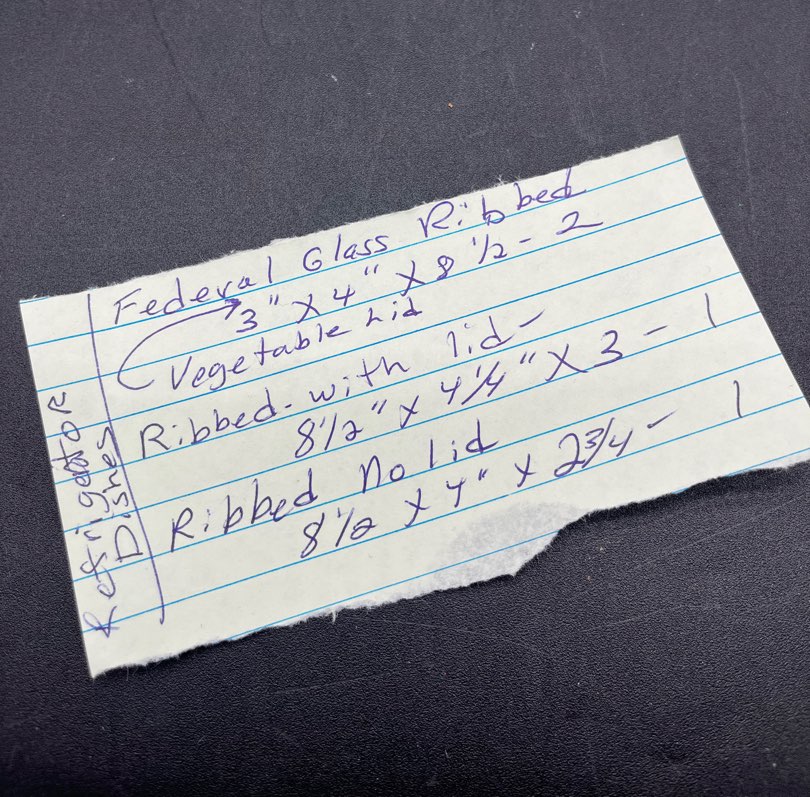 Federal Glass Ribbed
3" x 4" x 8 1/2 - 2
Vegetable Lid
Ribbed - with lid -
8 1/2" x 4 1/4" x 3 - 1
Ribbed No lid
8 1/2 x 4" x 2 3/4 - 1
Refrigator
Dishes